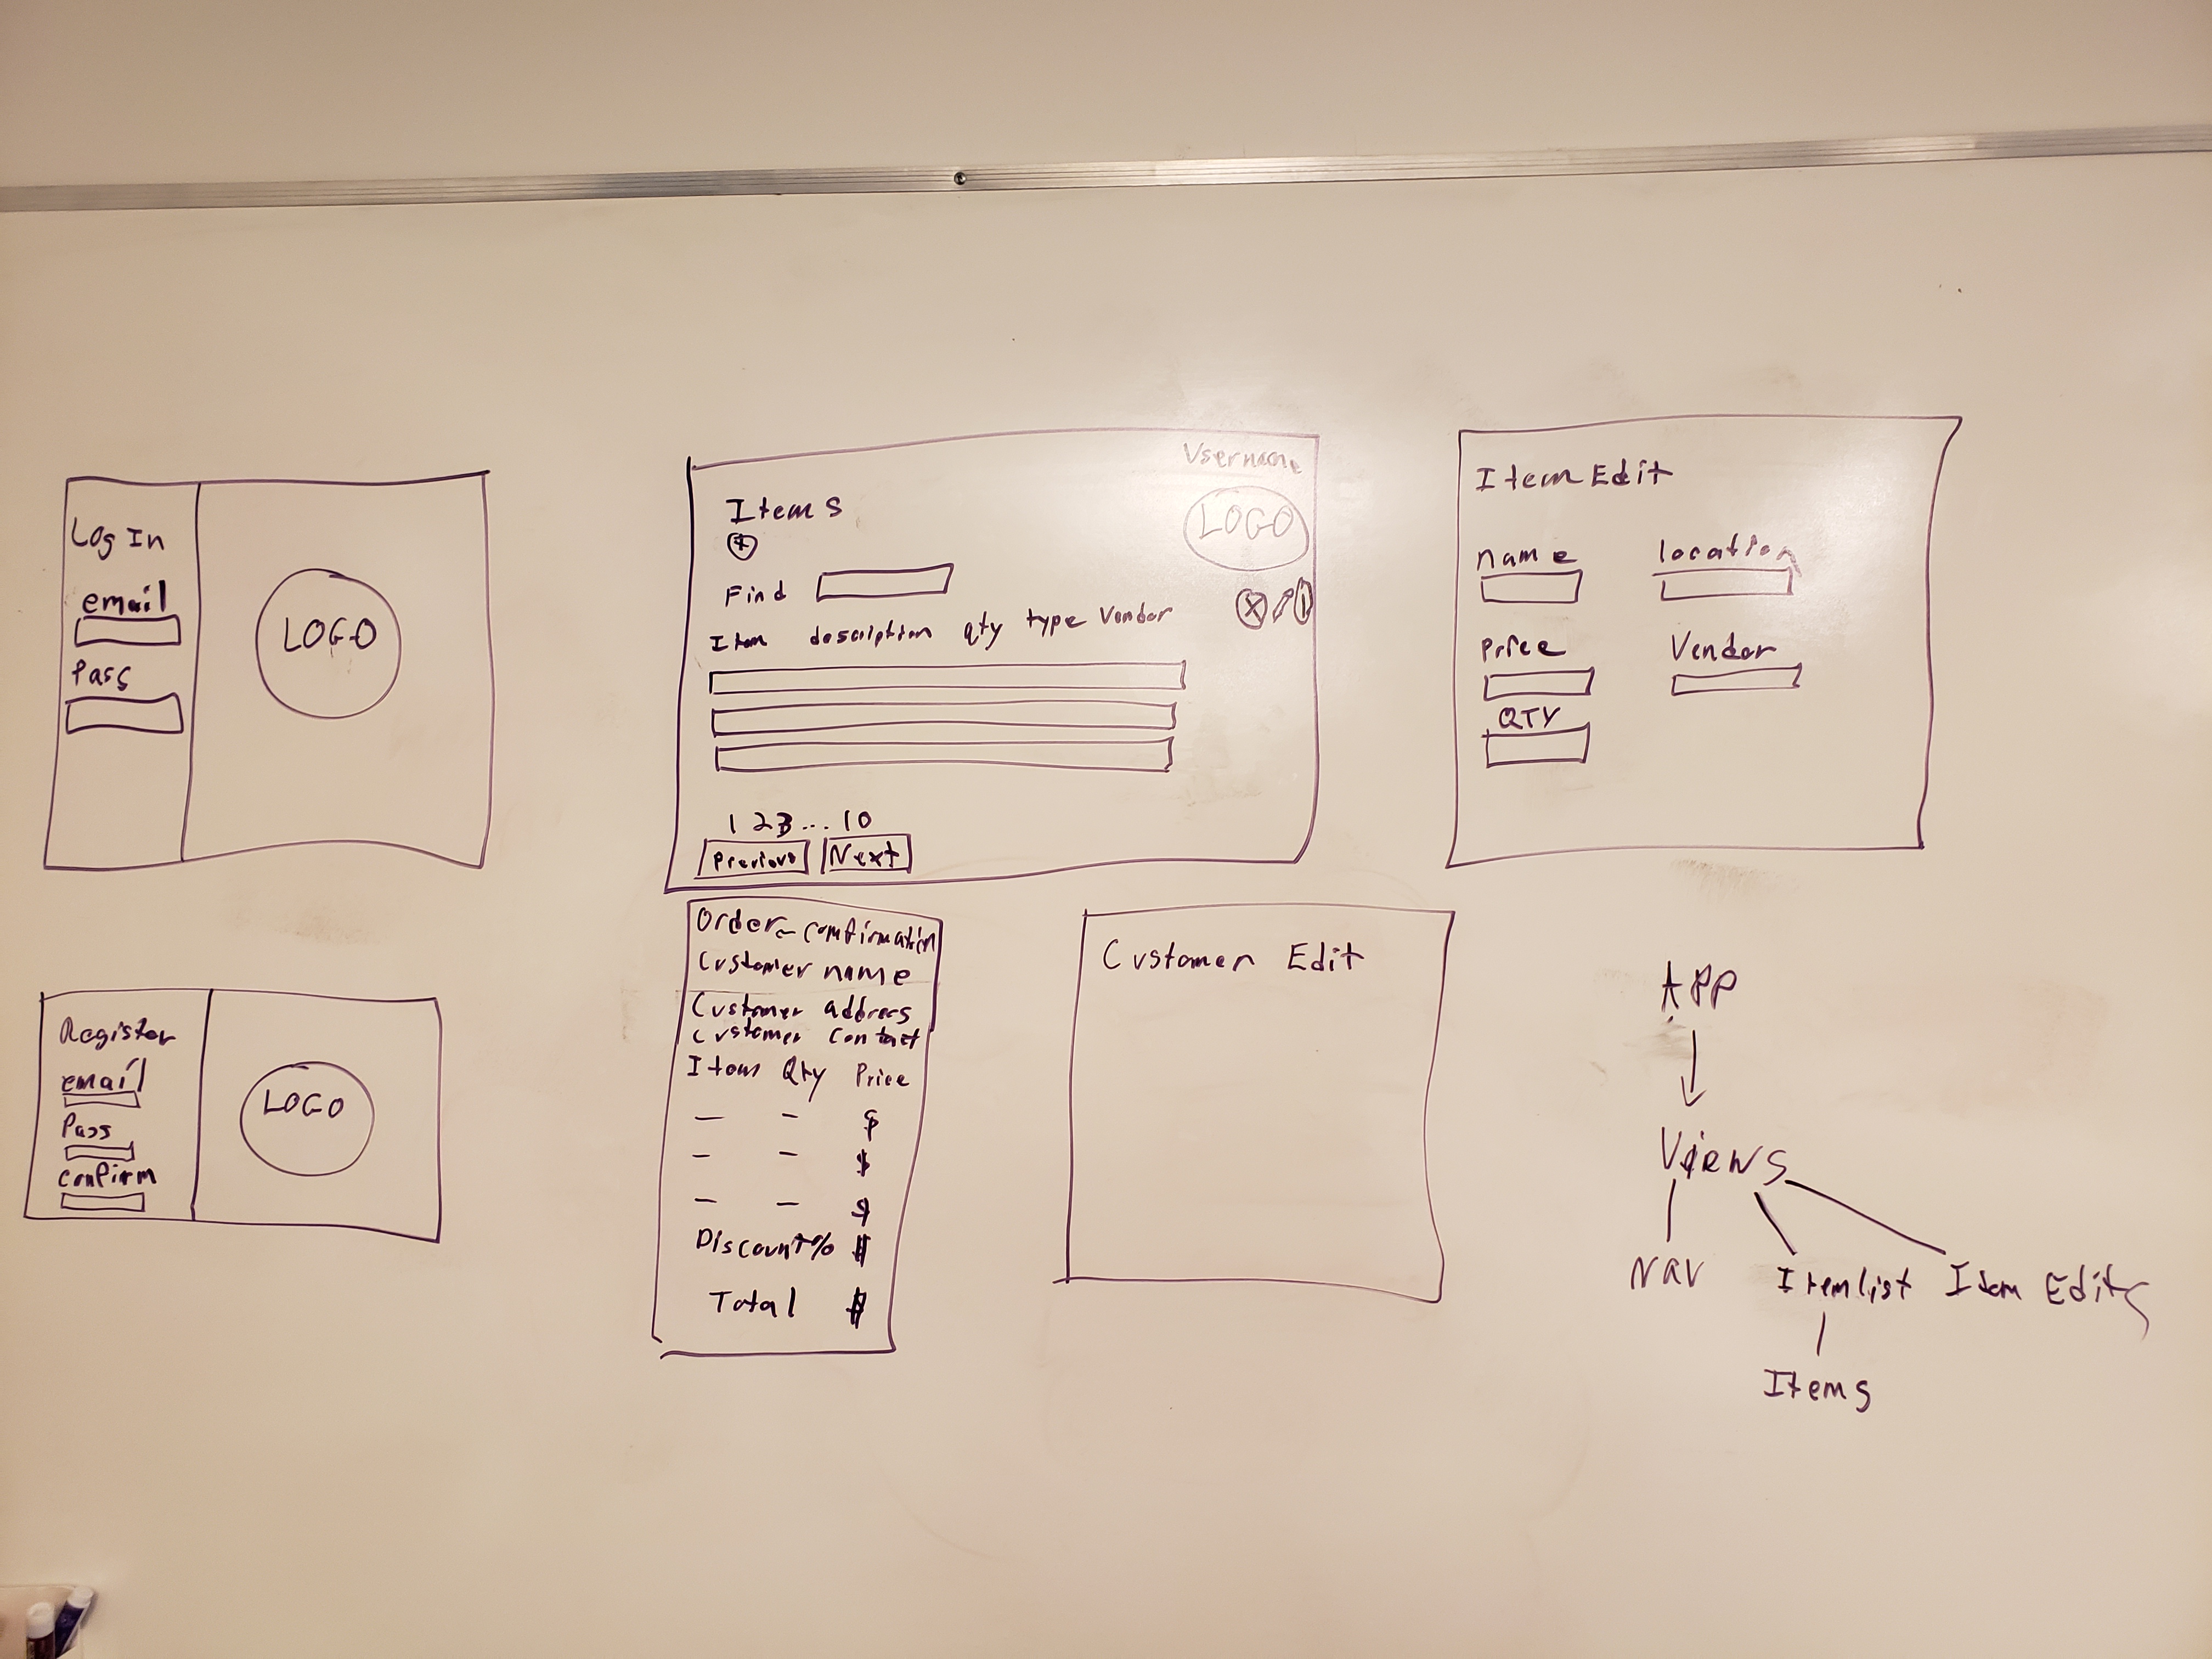 Log In
email
Pass
LOGO
Username
Items
LOGO
Find
Item description qty type Vendor
1 2 3 ... 10
Previous Next
Item Edit
name location
Price Vendor
QTY
Register
email
Pass
confirm
LOGO
Order confirmation
Customer name
Customer address
Customer contact
Items Qty Price
— — $
— — $
— — $
Discount % $
Total $
Customer Edit
APP
Views
NAV Itemlist Item Edits
Items